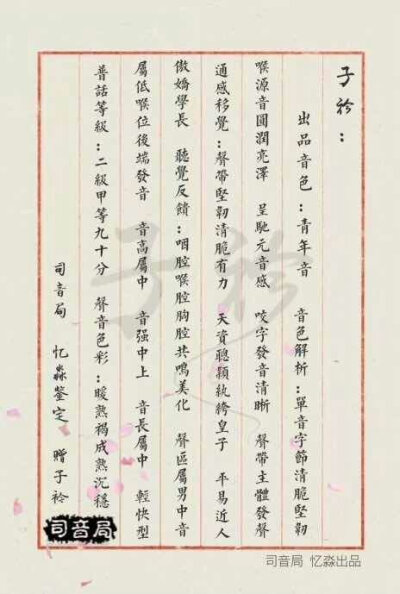 子衿：
出品音色：青年音　音色解析：單音字節清脆堅韌
喉源音圓潤亮澤　呈馳元音感　咬字發音清晰　聲帶主體發聲
通感移覺：聲帶堅韌清脆有力　天資聰穎紈絝皇子　平易近人
傲嬌學長　聽覺反饋：咽腔喉腔胸腔共鳴美化　聲區屬男中音
屬低喉位後端發音　音高屬中　音强中上　音長屬中　輕快型
普話等級：二級甲等九十分　聲音色彩：暖熟褐成熟沉穩
司音局　忆淼鉴定　贈子衿
子衿
司音局
司音局 忆淼出品